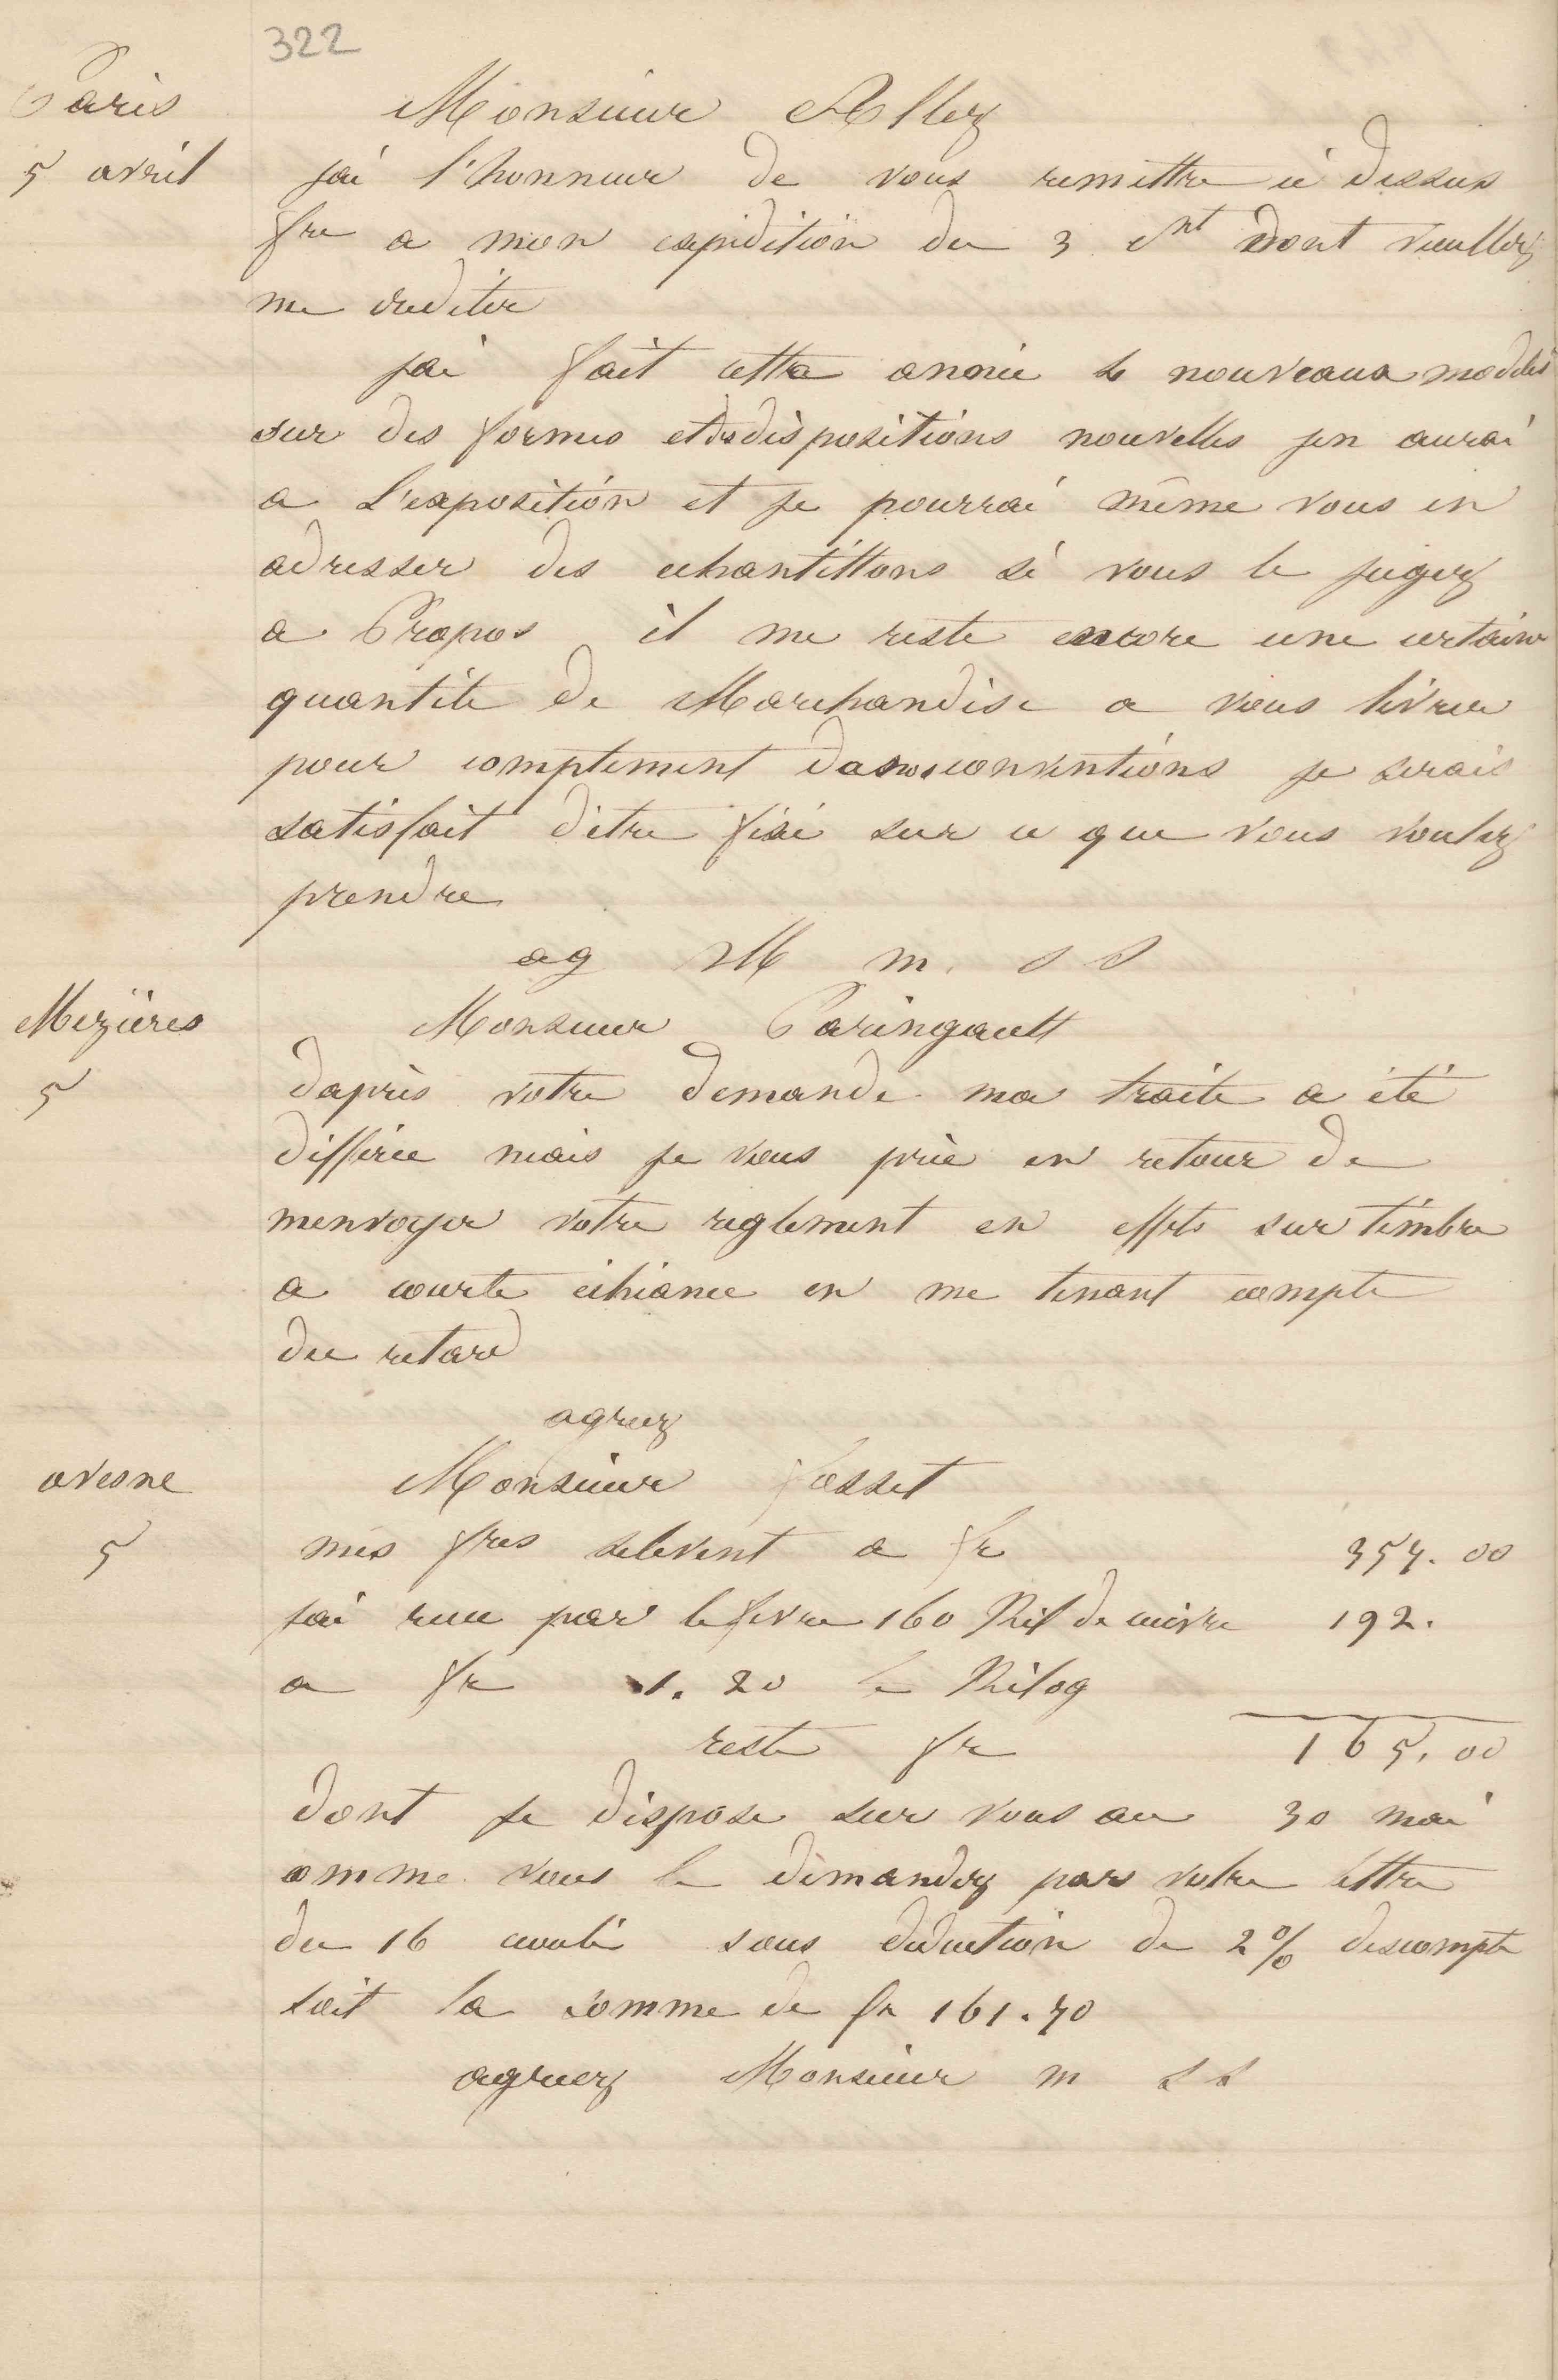 322
Paris
5 avril
Monsieur Allez
jai l'honneur de vous remettre ci dessus
fre a mon expedition du 3 ct dont veuillez
me crediter
jai fait cette année de nouveaux modeles
sur des formes et des dispositions nouvelles jen aurai
a L'exposition et je pourrai même vous en
adresser des echantillons si vous le jugez
a Propos il me reste encore une certaine
quantite de Marchandise a vous livrer
pour complement de nos conventions je serais
satisfait d'etre fixé sur ce que vous voulez
prendre
ag M m. s s
Mezières
5
Monsieur Paringault
daprès votre demande ma traite a été
differée mais je vous prie en retour de
menvoyer votre reglement en effets sur timbre
a courte echéance en me tenant compte
du retard
agreez
avesne
5
Monsieur fosset
mes fres selevent a fr 357.00
jai recu par lefevre 160 Kil de cuivre 192.
a fr 1.20 le Kilog
reste fr 165.00
dont je dispose sur vous au 30 mai
comme vous le demandez par votre lettre
du 16 ecoulé sous deduction de 2% descompte
soit la somme de fr 161.70
agreez Monsieur m s s